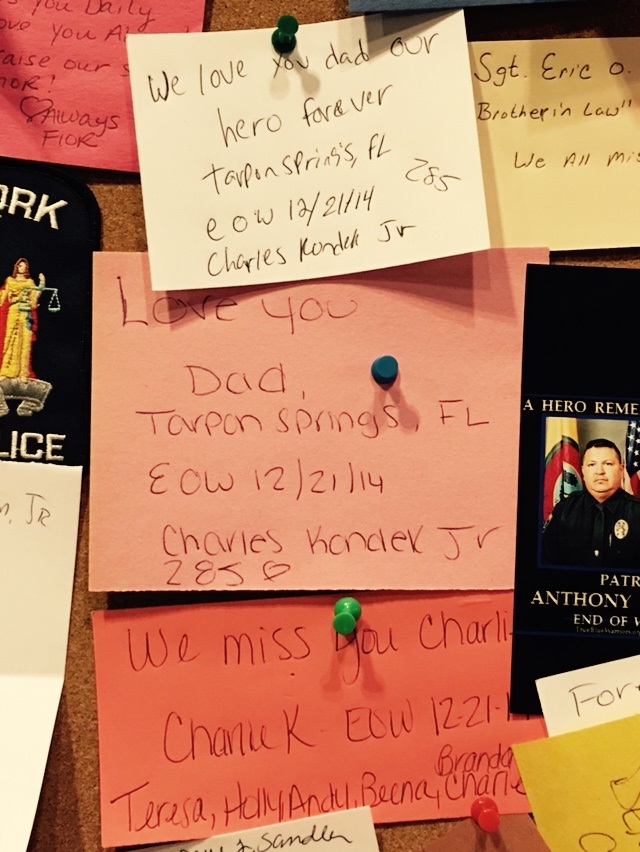 You Daily
love you
raise our
HONOR!
♡Always
FIOR
We love you dad our
hero forever
tarpon springs, FL
285
EOW 12/21/14
Charles Kondek Jr
Sgt. Eric O.
Brother in Law"
We All Mis
ORK
LICE
Love you
Dad,
Tarpon Springs, FL
EOW 12/21/14
Charles Kondek Jr
285 ♡
JR
A HERO REME
PATR
ANTHONY
END OF W
We miss you Charli
Charlie K EOW 12-21-1
Branda
Teresa, Holly, Andy, Beena, Charlie
For
Sandler